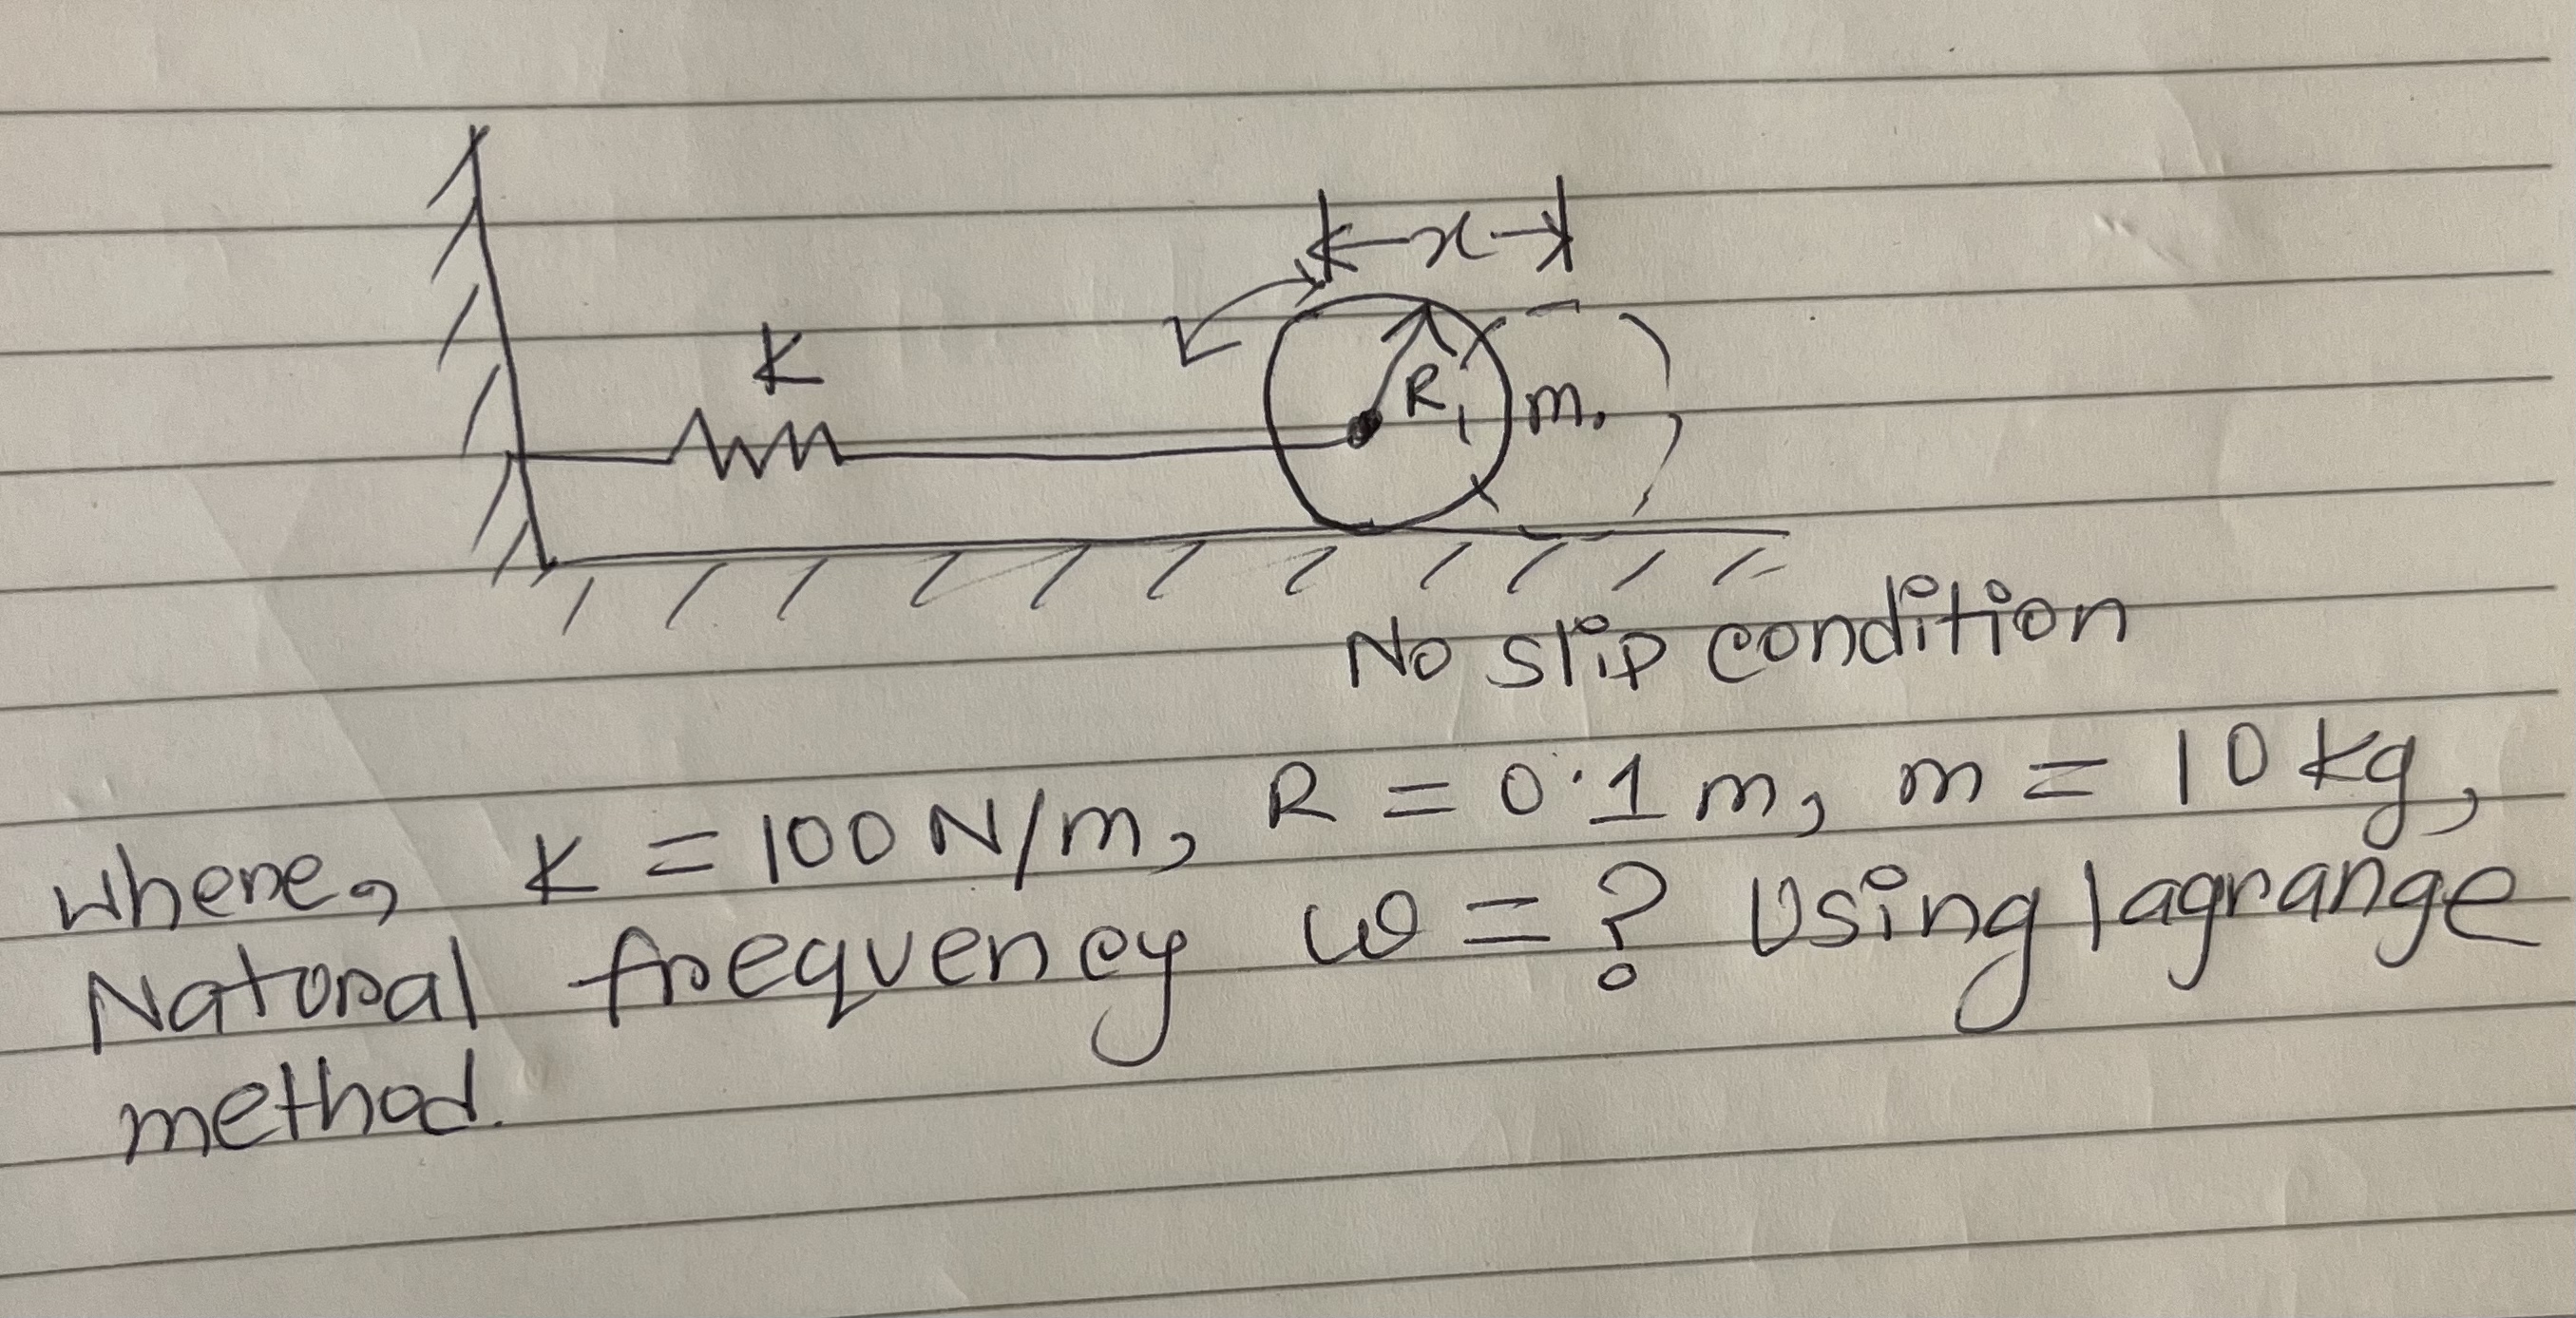 x
K
R, m.
No slip condition
where, K = 100 N/m, R = 0.1 m, m = 10 kg,
Natural frequency ω = ? Using lagrange
method.